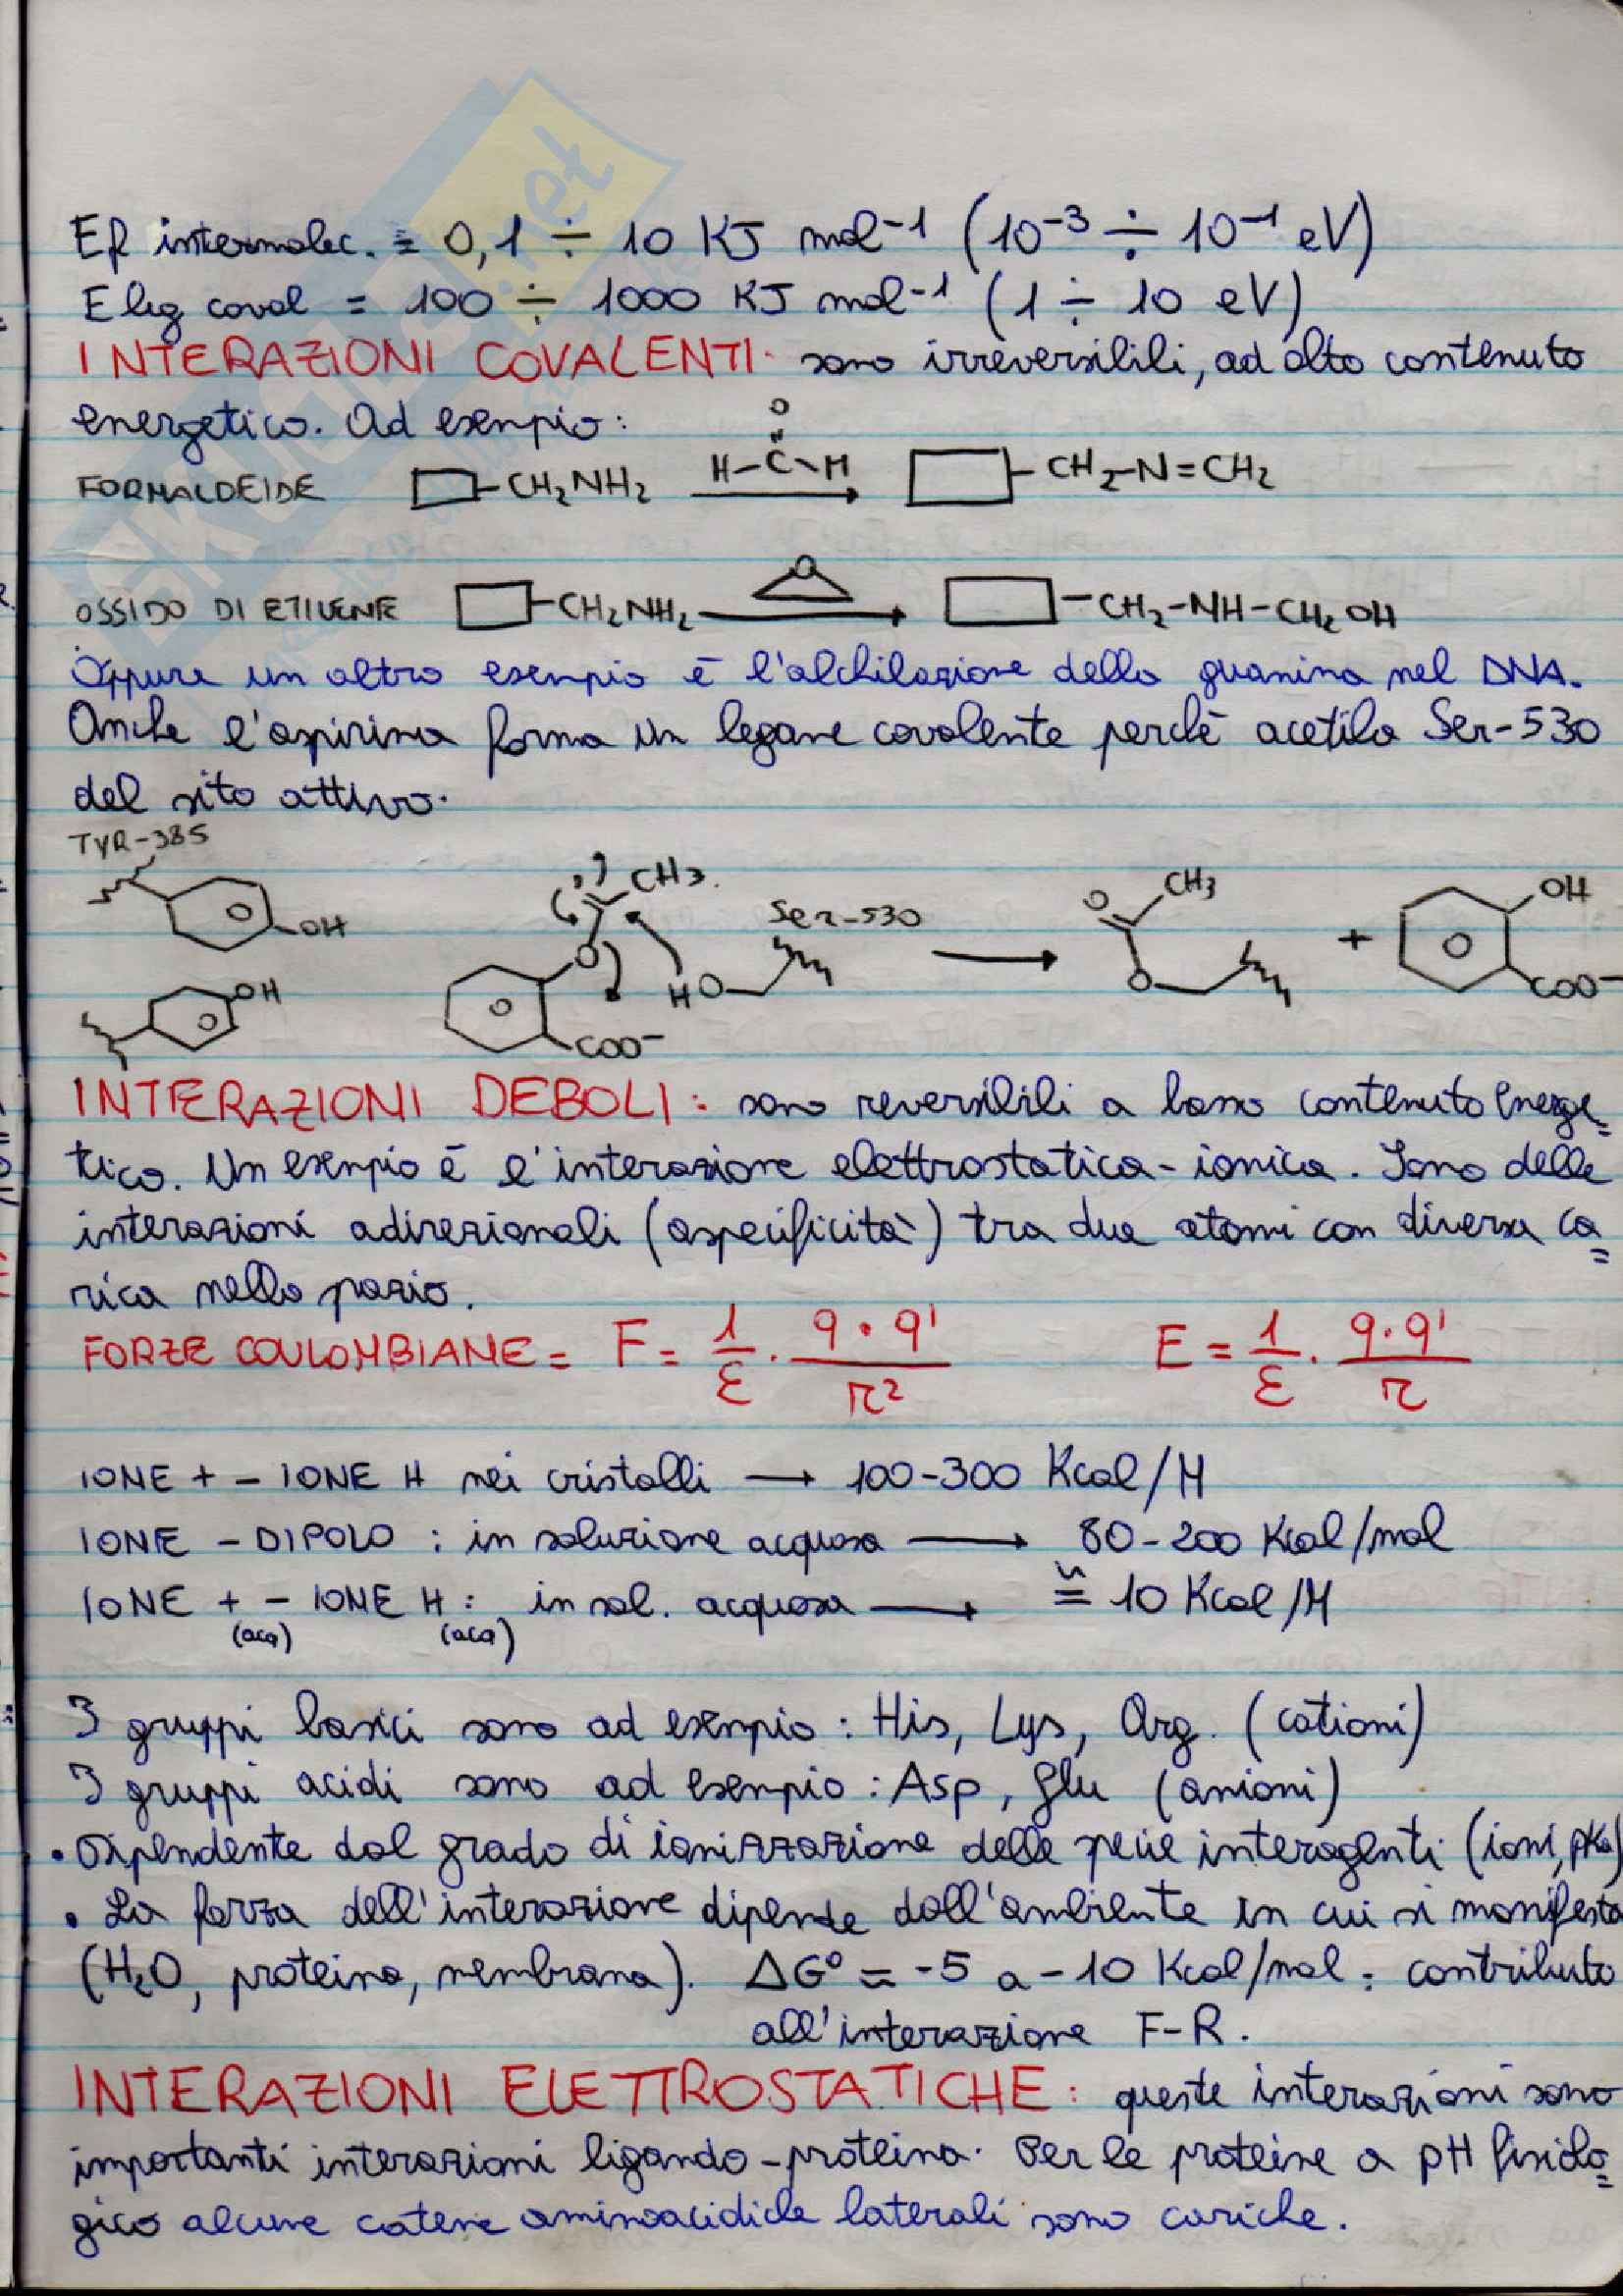 Ef intermolec. = 0,1 ÷ 10 KJ mol⁻¹ (10⁻³ ÷ 10⁻¹ eV)
E leg coval = 100 ÷ 1000 KJ mol⁻¹ (1 ÷ 10 eV)
INTERAZIONI COVALENTI: sono irreversibili, ad alto contenuto
energetico. Ad esempio:
O
FORMALDEIDE -CH₂NH₂ H-C-H -CH₂-N=CH₂
OSSIDO DI ETILENE -CH₂NH₂ O -CH₂-NH-CH₂OH
Oppure un altro esempio è l'alchilazione della guanina nel DNA.
Anche l'aspirina forma un legame covalente perchè acetila Ser-530
del sito attivo.
TYR-385
OH CH₃ Ser-530 O CH₃ + OH
OH O HO O COO⁻
COO⁻
INTERAZIONI DEBOLI: sono reversibili a basso contenuto energe=
tico. Un esempio è l'interazione elettrostatica-ionica. Sono delle
interazioni adirezionali (aspecificità) tra due atomi con diversa ca=
rica nello spazio.
FORZE COULOMBIANE = F = 1/ε · q·q'/r² E = 1/ε · q·q'/r
IONE + - IONE H nei cristalli → 100-300 Kcal/M
IONE - DIPOLO : in soluzione acquosa → 80-200 Kcal/mol
IONE + - IONE H : in sol. acquosa → ≅ 10 Kcal/M
(acq) (acq)
I gruppi basici sono ad esempio: His, Lys, Arg. (cationi)
I gruppi acidi sono ad esempio: Asp, Glu (anioni)
• Dipendente dal grado di ionizzazione delle specie interagenti (ioni, pKa)
• La forza dell'interazione dipende dall'ambiente in cui si manifesta
(H₂O, proteina, membrana). ΔG° ≈ -5 a -10 Kcal/mol : contributo
all'interazione F-R.
INTERAZIONI ELETTROSTATICHE: queste interazioni sono
importanti interazioni ligando-proteina. Per le proteine a pH fisiolo=
gico alcune catene aminoacidiche laterali sono cariche.